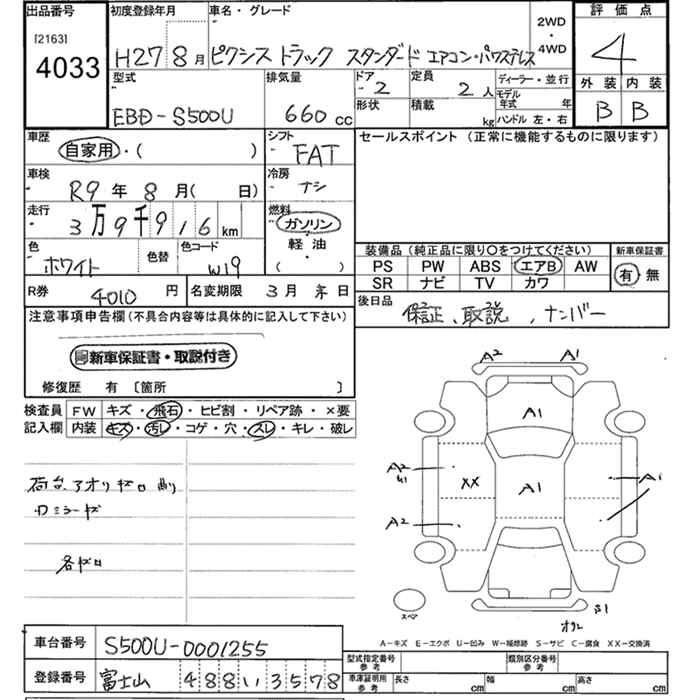 出品番号 初度登録年月 車名・グレード 2WD・4WD 評価点
[2163]
4033 H27 8月 ピクシス トラック スタンダード エアコン・パワステレス 4
型式 排気量 ドア 定員 ディーラー・並行 外装 内装
EBD-S500U 660cc 2 2人 モデル年式 年 B B
形状 積載 kg ハンドル 左・右
車歴 自家用・( ) シフト FAT セールスポイント (正常に機能するものに限ります)
車検 R9年8月( 日) 冷房 ナシ
走行 3万9千916km 燃料 ガソリン
軽油
( )
色 ホワイト 色替 色コード W19
装備品 (純正品に限り○をつけてください) 新車保証書
PS PW ABS エアB AW 有・無
SR ナビ TV カワ
R券 4010円 名変期限 3月末日 後日品 保証、取説、ナンバー
注意事項申告欄(不具合内容等は具体的に記入して下さい)
新車保証書・取説付き
修復歴 有 [箇所 ]
検査員 FW キズ・飛石・ヒビ割・リペア跡・×要
記入欄 内装 キズ・汚レ・コゲ・穴・スレ・キレ・破レ
A2 A1
A1
A2 XX A1 A1
A2
荷台、アオリキズ凹有り
ミラーキズ
各キズ凹
スペア
S1
A-キズ E-エクボ U-凹み W-補修跡 S-サビ C-腐食 XX-交換済
車台番号 S500U-0001255
型式指定番号 参考 類別区分番号 参考
登録番号 富士山 488 い 3578
車庫証明用 参考 長さ cm 幅 cm 高さ cm